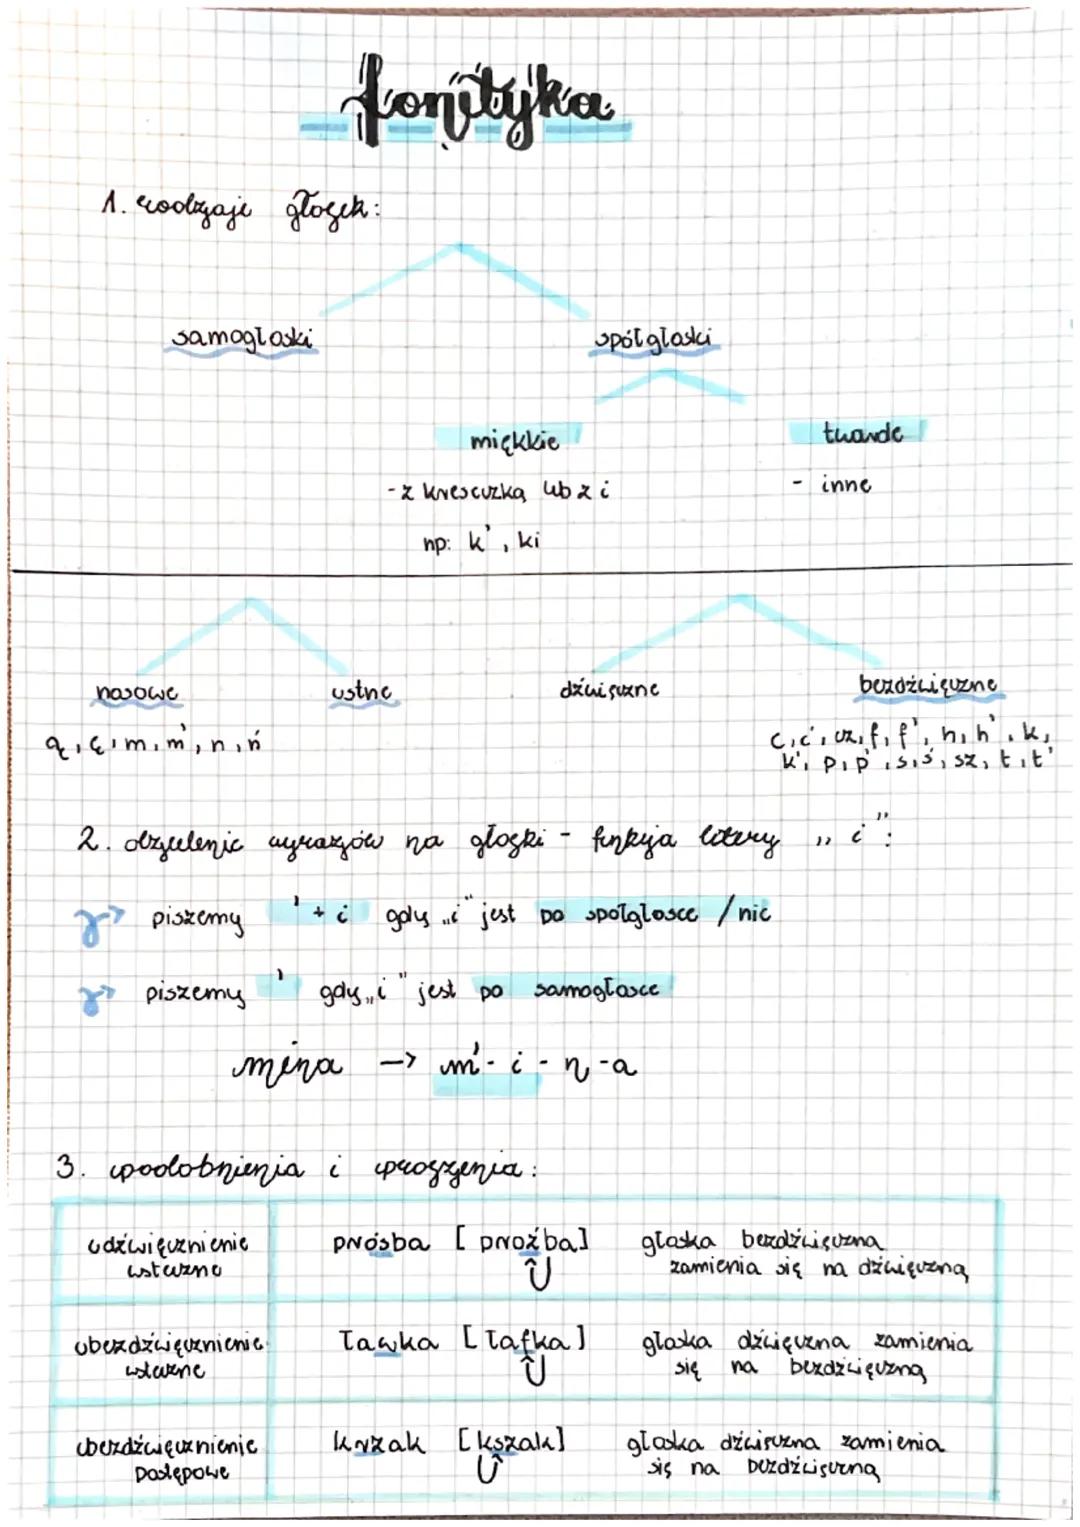 fonetyka
1. rodzaje głosek:
samogłoski spółgłoski
miękkie twarde
- z kreseczką lub z i - inne
np: k', ki
nosowe ustne dźwięczne bezdźwięczne
ą, ę, m, m', n, ń c, ć, cz, f, f', h, h', k,
k', p, p', s, ś, sz, t, t'
2. dzielenie wyrazów na głoski - funkcja litery „i”:
piszemy ' + i gdy „i” jest po spółgłosce / nic
piszemy ' gdy „i” jest po samogłosce
mina -> m' - i - n - a
3. upodobnienia i uproszczenia:
udźwięcznienie prośba [proźba] głoska bezdźwięczna
wsteczne zamienia się na dźwięczną
ubezdźwięcznienie ławka [łafka] głoska dźwięczna zamienia
wsteczne się na bezdźwięczną
ubezdźwięcznienie krzak [kszak] głoska dźwięczna zamienia
postępowe się na bezdźwięczną